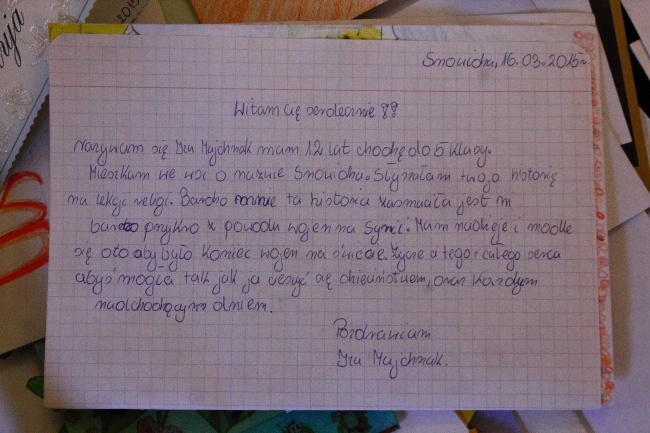 Snowidza, 16.03.2015r
Witam Cię serdecznie !!
Nazywam się Iza Majchrzak mam 12 lat chodzę do 5 klasy.
Mieszkam we wsi o nazwie Snowidza. Słyszałam twoją historię
na lekcji religi. Bardzo mnie ta historia zasmuała jest mi
bardzo przykro z powodu wojen na Syrii. Mam nadzieje i modle
się oto aby było koniec wojen na świecie. Życze ci tego z całego serca
abyś mogła tak jak ja cieszyć się dzieciństwem, oraz każdym
nadchodzącym dniem.
Pozdrawiam
Iza Majchrzak.